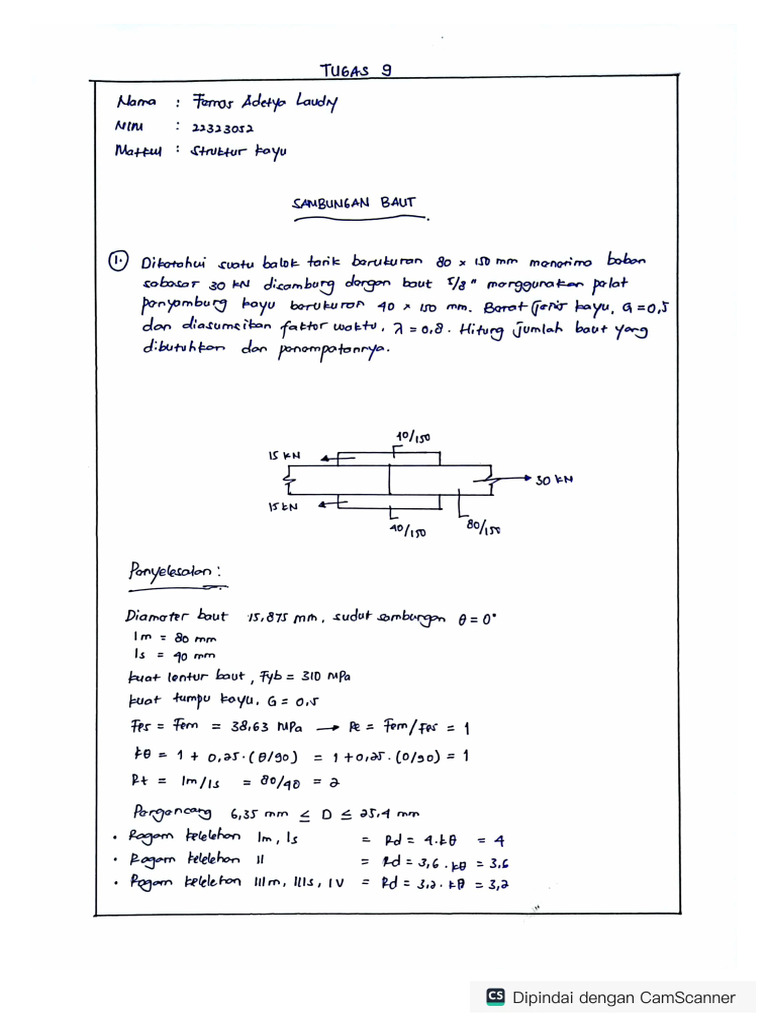 TUGAS 9
Nama : Farros Adetya Laudry
NIM : 22323052
Matkul : Struktur kayu
SAMBUNGAN BAUT
1. Diketahui suatu balok tarik berukuran 80 x 150 mm menerima beban
sebesar 30 kN disambung dengan baut 5/8" menggunakan pelat
penyambung kayu berukuran 40 x 150 mm. Berat jenis kayu, G = 0,5
dan diasumsikan faktor waktu, λ = 0,8. Hitung jumlah baut yang
dibutuhkan dan penempatannya.
40/150
15 kN
30 kN
15 kN
40/150
80/150
Penyelesaian :
Diameter baut 15,875 mm, sudut sambungan θ = 0°
lm = 80 mm
ls = 40 mm
kuat lentur baut, Fyb = 310 MPa
kuat tumpu kayu, G = 0,5
Fes = Fem = 38,63 MPa → Re = Fem/Fes = 1
kθ = 1 + 0,25 . (θ/90) = 1 + 0,25 . (0/90) = 1
Rt = lm/ls = 80/40 = 2
Pengencang 6,35 mm ≤ D ≤ 25,4 mm
• Ragam kelelehan Im, Is = Rd = 4.kθ = 4
• Ragam kelelehan II = Rd = 3,6 . kθ = 3.6
• Ragam kelelehan IIIm, IIIs, IV = Rd = 3.2 . kθ = 3,2
CS Dipindai dengan CamScanner